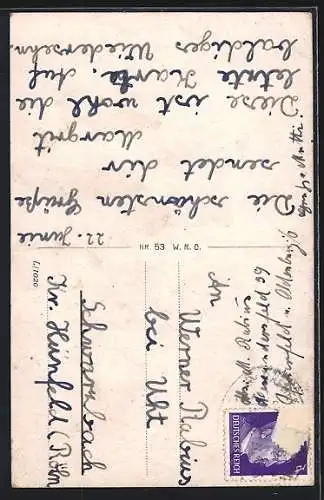 22. Junie
Die schönsten Grüße
sendet dir
Margrit
Diese ist wohl die
letzte Karte. Auf
baldiges Wiedersehn.
Gruß Mutti.
NR. 53 W. R. O.
L/1020
An
Werner Rabius
bei Uht
Schwarzbach
Kr. Hünfeld (Röhn
DEUTSCHES REICH